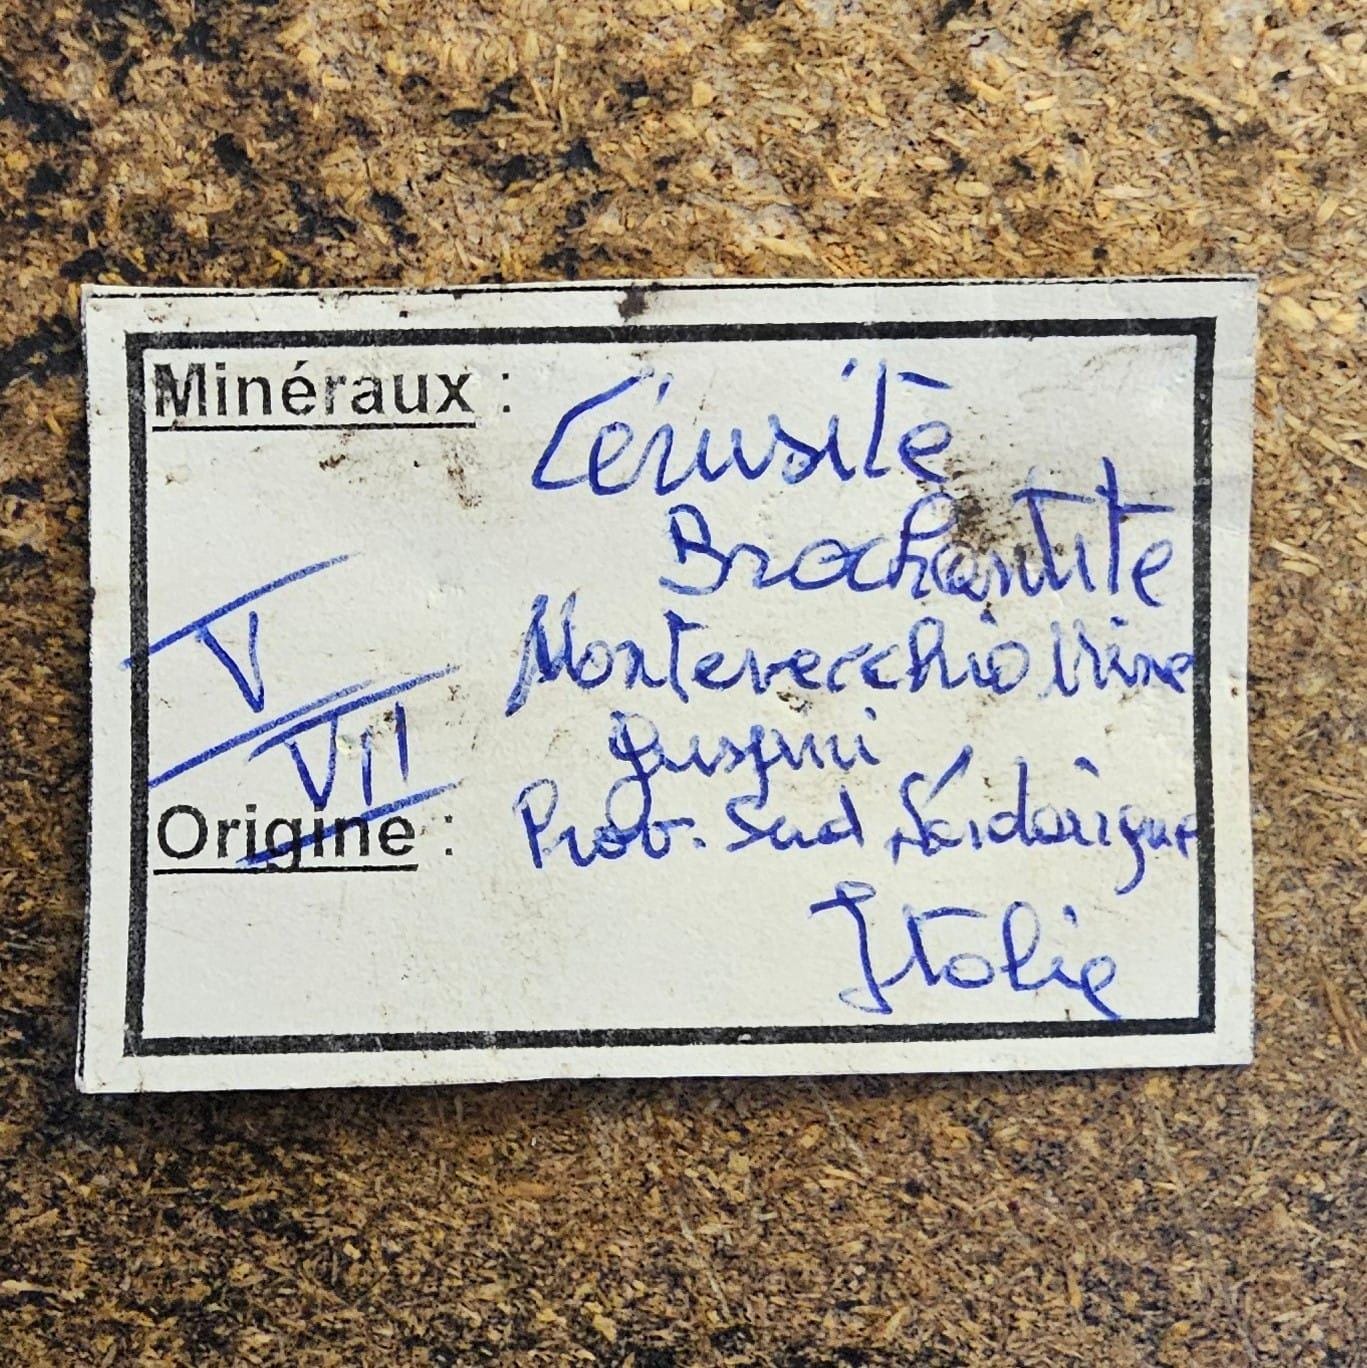 Minéraux : Cérusite
Brochantite
V
Montevecchio Mine
VII
Guspini
Origine : Prov. Sud Sardaigne
Italie